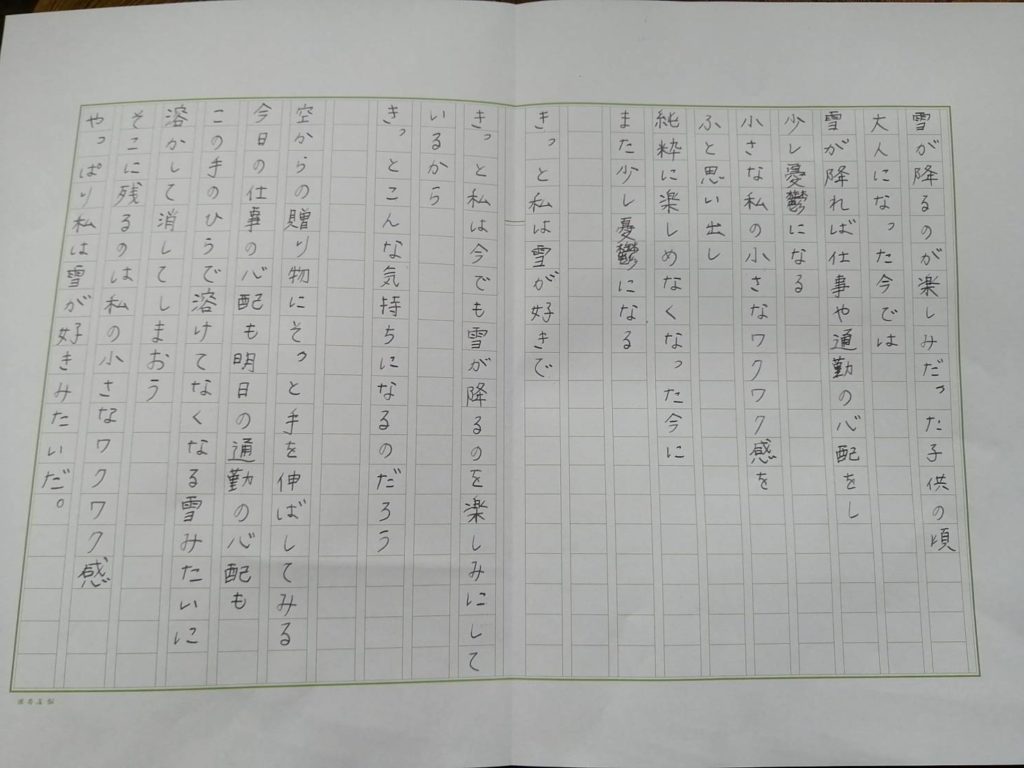 雪が降るのが楽しみだった子供の頃
大人になった今では
雪が降れば仕事や通勤の心配をし
少し憂鬱になる
小さな私の小さなワクワク感を
ふと思い出し
純粋に楽しめなくなった今に
また少し憂鬱になる
きっと私は雪が好きで
きっと私は今でも雪が降るのを楽しみにして
いるから
きっとこんな気持ちになるのだろう
空からの贈り物にそっと手を伸ばしてみる
今日の仕事の心配も明日の通勤の心配も
この手のひらで溶けてなくなる雪みたいに
溶かして消してしまおう
そこに残るのは私の小さなワクワク感
やっぱり私は雪が好きみたいだ。